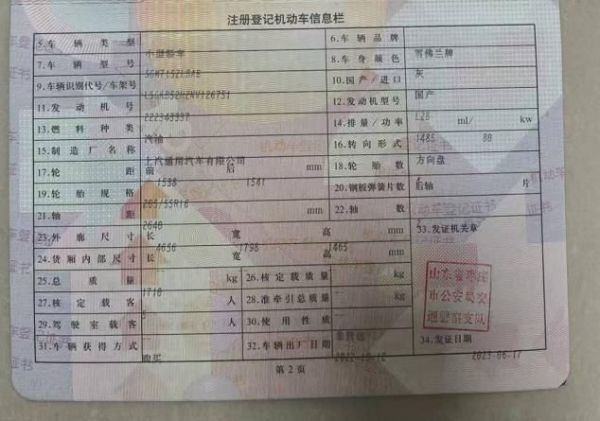 注册登记机动车信息栏
5.车辆类型 小型轿车 6.车辆品牌 雪佛兰牌
7.车辆型号 8.车身颜色 灰
9.车辆识别代号/车架号 10.国产/进口 国产
11.发动机号 12.发动机型号 L2B
13.燃料种类 汽油 14.排量/功率 1485 ml/ kw
15.制造厂名称 上汽通用汽车有限公司 16.转向形式 方向盘
17.轮距 前 1598 后 1541 mm 18.轮胎数
19.轮胎规格 205/55R16 20.钢板弹簧片数 后轴 片
21.轴距 2640 mm 22.轴数
23.外廓尺寸 长 4656 宽 1798 高 1465 mm 33.发证机关章
24.货厢内部尺寸 长 宽 高 mm
25.总质量 1710 kg 26.核定载质量 kg
27.核定载客 5 人 28.准牵引总质量 kg
29.驾驶室载客 人 30.使用性质
31.车辆获得方式 购买 32.车辆出厂日期 34.发证日期
山东省枣庄
市公安局交
通警察支队
第2页